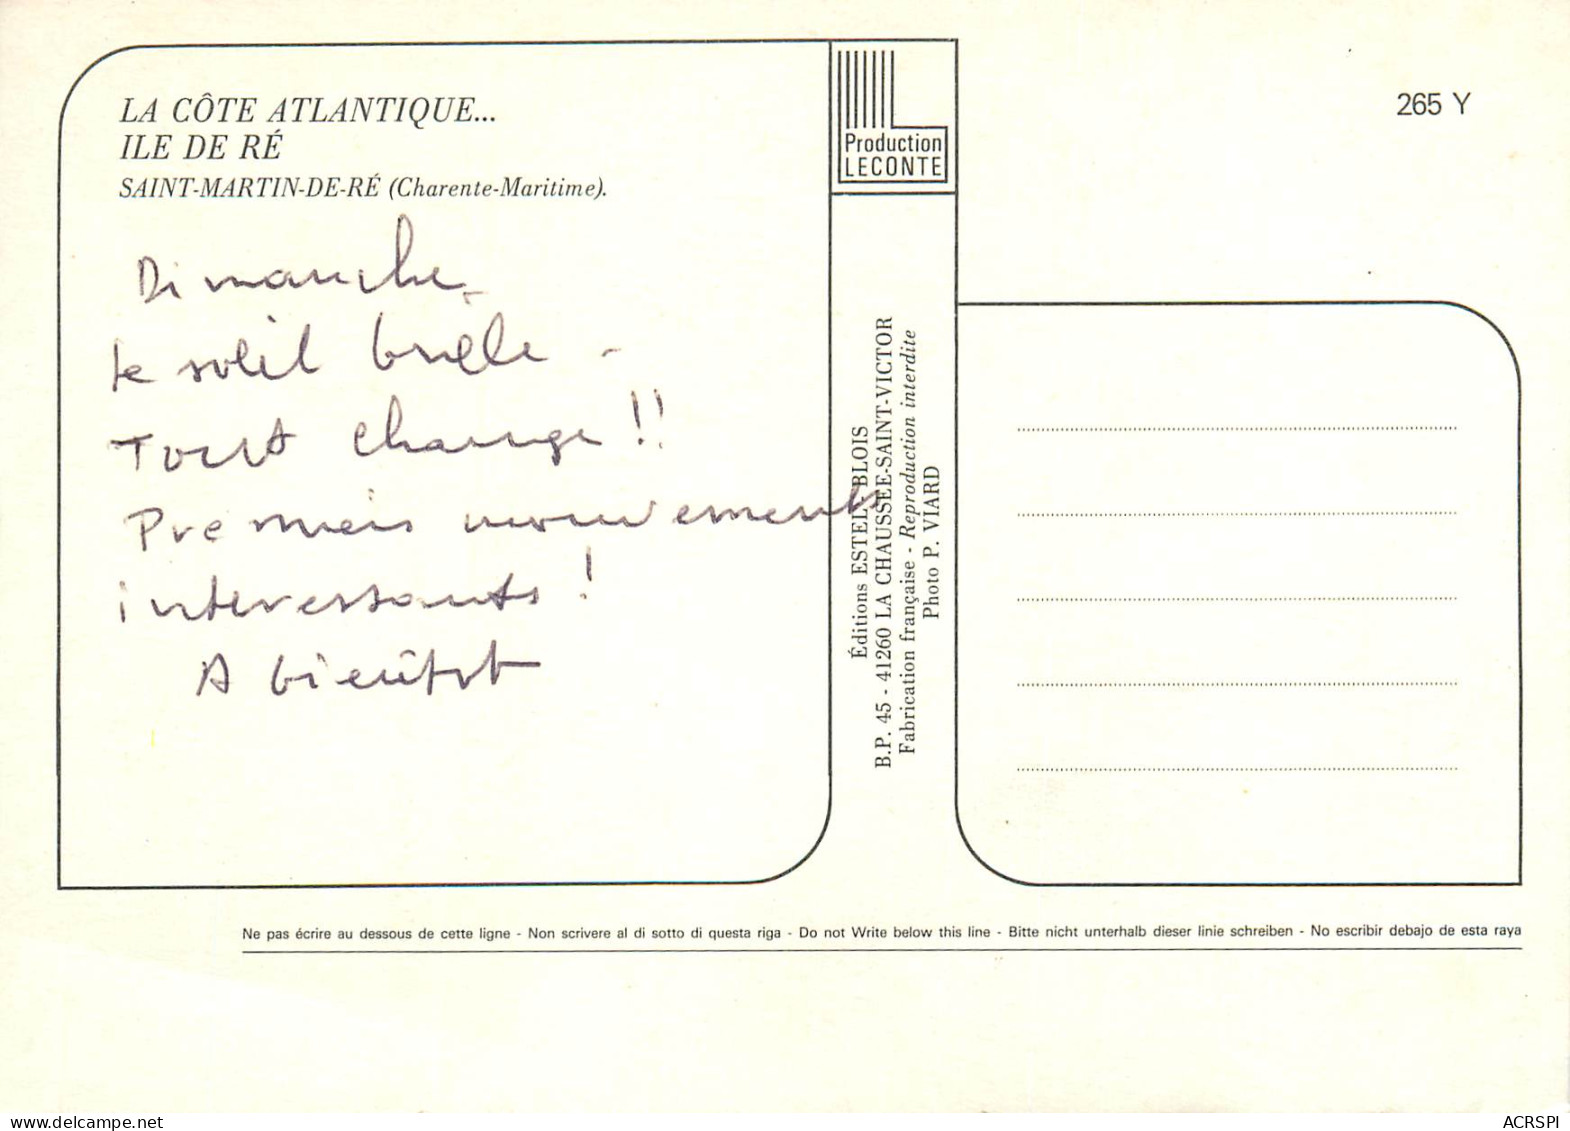 LA CÔTE ATLANTIQUE...
ILE DE RÉ
SAINT-MARTIN-DE-RÉ (Charente-Maritime).
Dimanche,
Le soleil brûle -
Tout change !!
Premiers mouvements
interessants !
A bientôt
Production
LECONTE
Éditions ESTEL-BLOIS
B.P. 45 - 41260 LA CHAUSSÉE-SAINT-VICTOR
Fabrication française - Reproduction interdite
Photo P. VIARD
265 Y
Ne pas écrire au dessous de cette ligne - Non scrivere al di sotto di questa riga - Do not Write below this line - Bitte nicht unterhalb dieser linie schreiben - No escribir debajo de esta raya
www.delcampe.net
ACRSPI